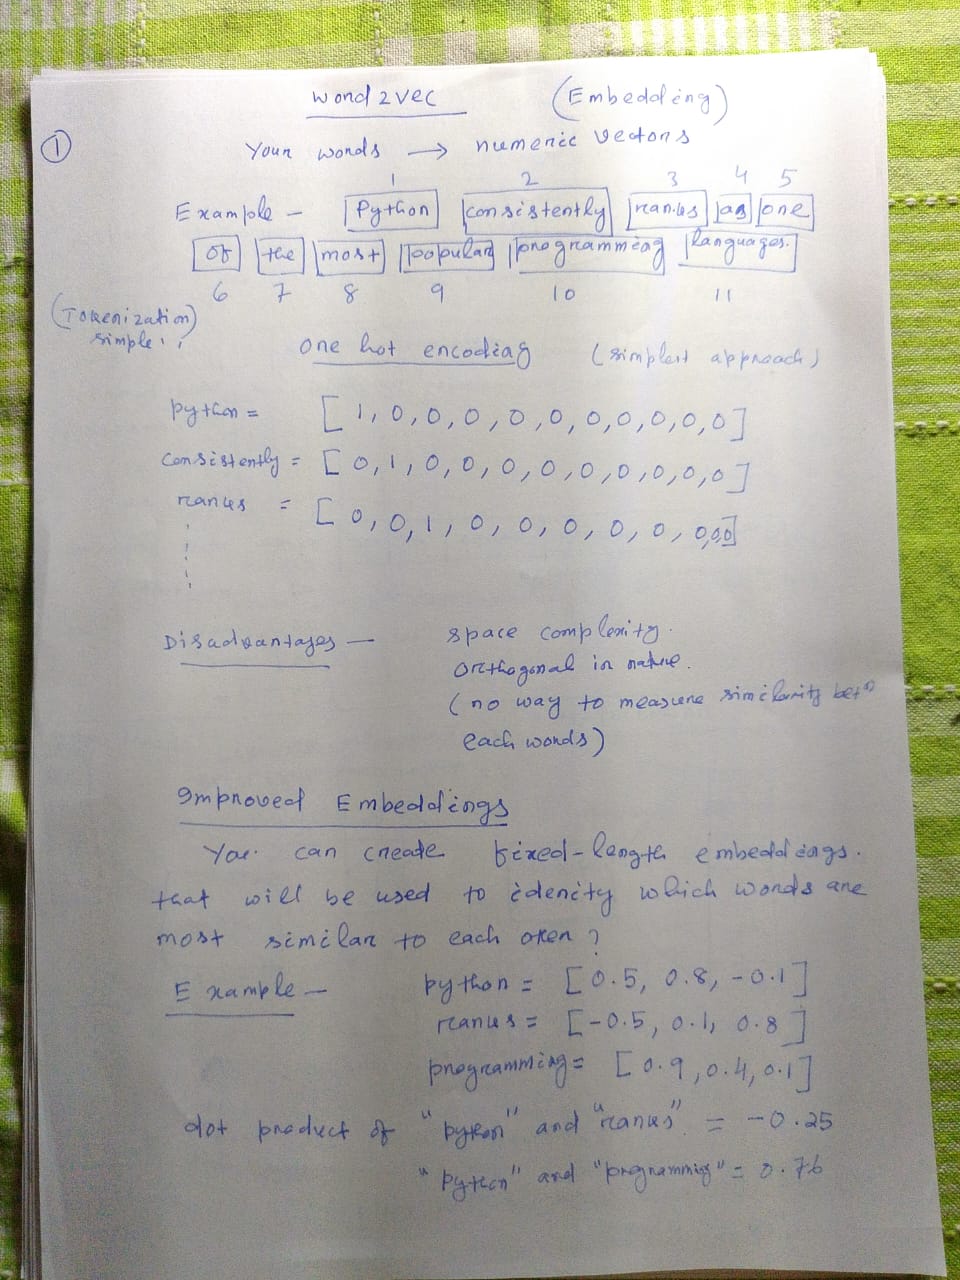 word2vec (Embedding)
①
Your words → numeric vectors
1 2 3 4 5
Example – Python consistently ranks as one
of the most popular programming languages.
6 7 8 9 10 11
(Tokenization)
simple
one hot encoding (simplest approach)
python = [1,0,0,0,0,0,0,0,0,0,0]
consistently = [0,1,0,0,0,0,0,0,0,0,0]
ranks = [0,0,1,0,0,0,0,0,0,0,0]
Disadvantages — space complexity.
Orthogonal in nature.
(no way to measure similarity betⁿ
each words)
Improved Embeddings
You can create fixed-length embeddings.
that will be used to idencity which words are
most similar to each other ?
Example — python = [0.5, 0.8, -0.1]
ranks = [-0.5, 0.1, 0.8]
programming = [0.9, 0.4, 0.1]
dot product of "python" and "ranks" = -0.25
"python" and "programming" = 0.76